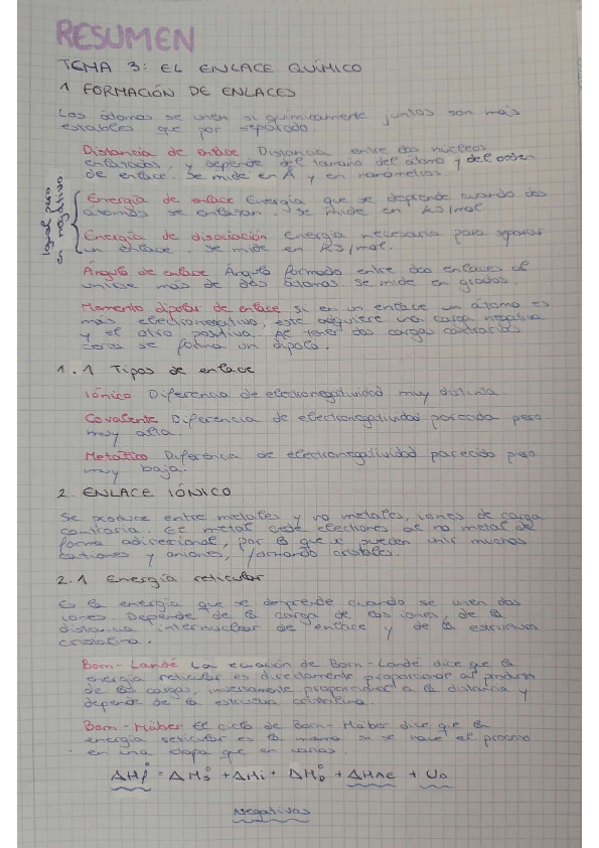 RESUMEN
TEMA 3: EL ENLACE QUÍMICO
1 FORMACIÓN DE ENLACES
Los átomos se unen si químicamente juntos son más
estables que por separado.
Distancia de enlace Distancia entre dos núcleos
enlazados, y depende del tamaño del átomo y del orden
de enlace. Se mide en Å y en nanómetros.
Igual pero
en negativo
Energía de enlace Energía que se desprende cuando dos
átomos se enlazan. Se mide en KJ/mol
Energía de disociación Energía necesaria para separar
un enlace. Se mide en KJ/mol.
Ángulo de enlace Ángulo formado entre dos enlaces al
unirse más de dos átomos. Se mide en grados.
Momento dipolar de enlace Si en un enlace un átomo es
más electronegativo, este adquiere una carga negativa
y el otro positiva. Al tener dos cargas contrarias
cerca se forma un dipolo.
1.1 Tipos de enlace
Iónico Diferencia de electronegatividad muy distinta.
Covalente Diferencia de electronegatividad parecida pero
muy alta.
Metálico Diferencia de electronegatividad parecida pero
muy baja.
2. ENLACE IÓNICO
Se produce entre metales y no metales, iones de carga
contraria. El metal cede electrones al no metal de
forma adireccional, por lo que se pueden unir muchos
cationes y aniones, formando cristales.
2.1 Energía reticular
Es la energía que se desprende cuando se unen dos
iones. Depende de la carga de los iones, de la
distancia internuclear de enlace y de la estructura
cristalina.
Born-Landé La ecuación de Born-Landé dice que la
energía reticular es directamente proporcional al producto
de las cargas, inversamente proporcional a la distancia y
depende de la estructura cristalina.
Born-Háber El ciclo de Born-Háber dice que la
energía reticular es la misma si se hace el proceso
en una etapa que en varias.
ΔHf° = ΔHs° + ΔHi + ΔHD° + ΔHAE + U0
Negativas